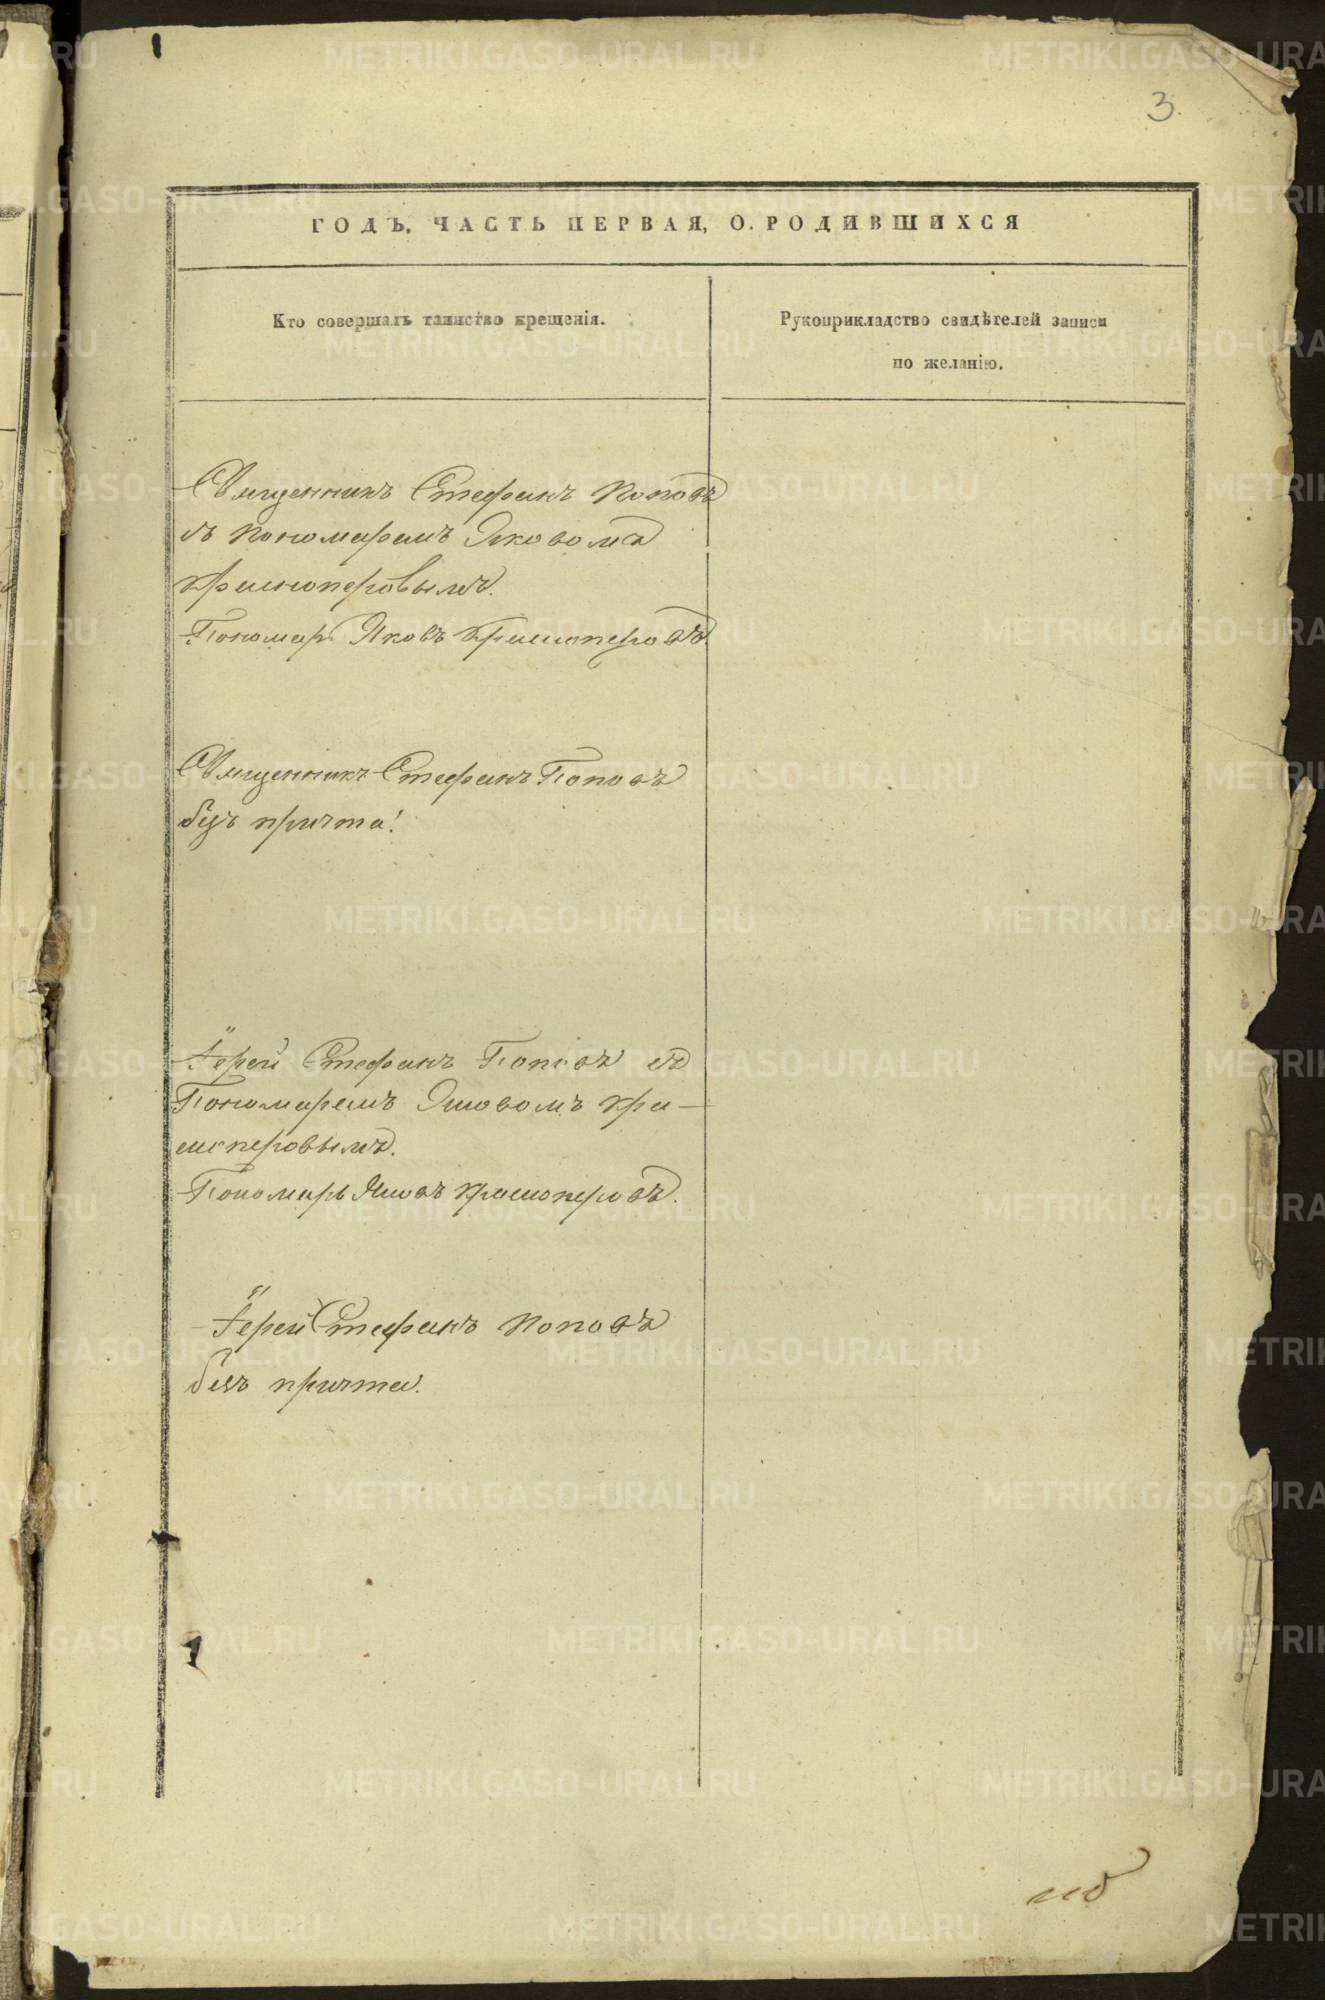 3.
ГОДЪ, ЧАСТЬ ПЕРВАЯ, О РОДИВШИХСЯ
Кто совершалъ таинство крещенія.
Рукоприкладство свидѣтелей записи
по желанію.
Священникъ Стефанъ Поповъ
съ пономаремъ Яковомъ
Красноперовымъ.
Пономарь Яковъ Красноперовъ.
Священникъ Стефанъ Поповъ
безъ причта.
Іерей Стефанъ Поповъ съ
Пономаремъ Яковомъ Кра-
сноперовымъ.
Пономарь Яковъ Красноперовъ.
Іерей Стефанъ Поповъ
безъ причта.
METRIKI.GASO-URAL.RU